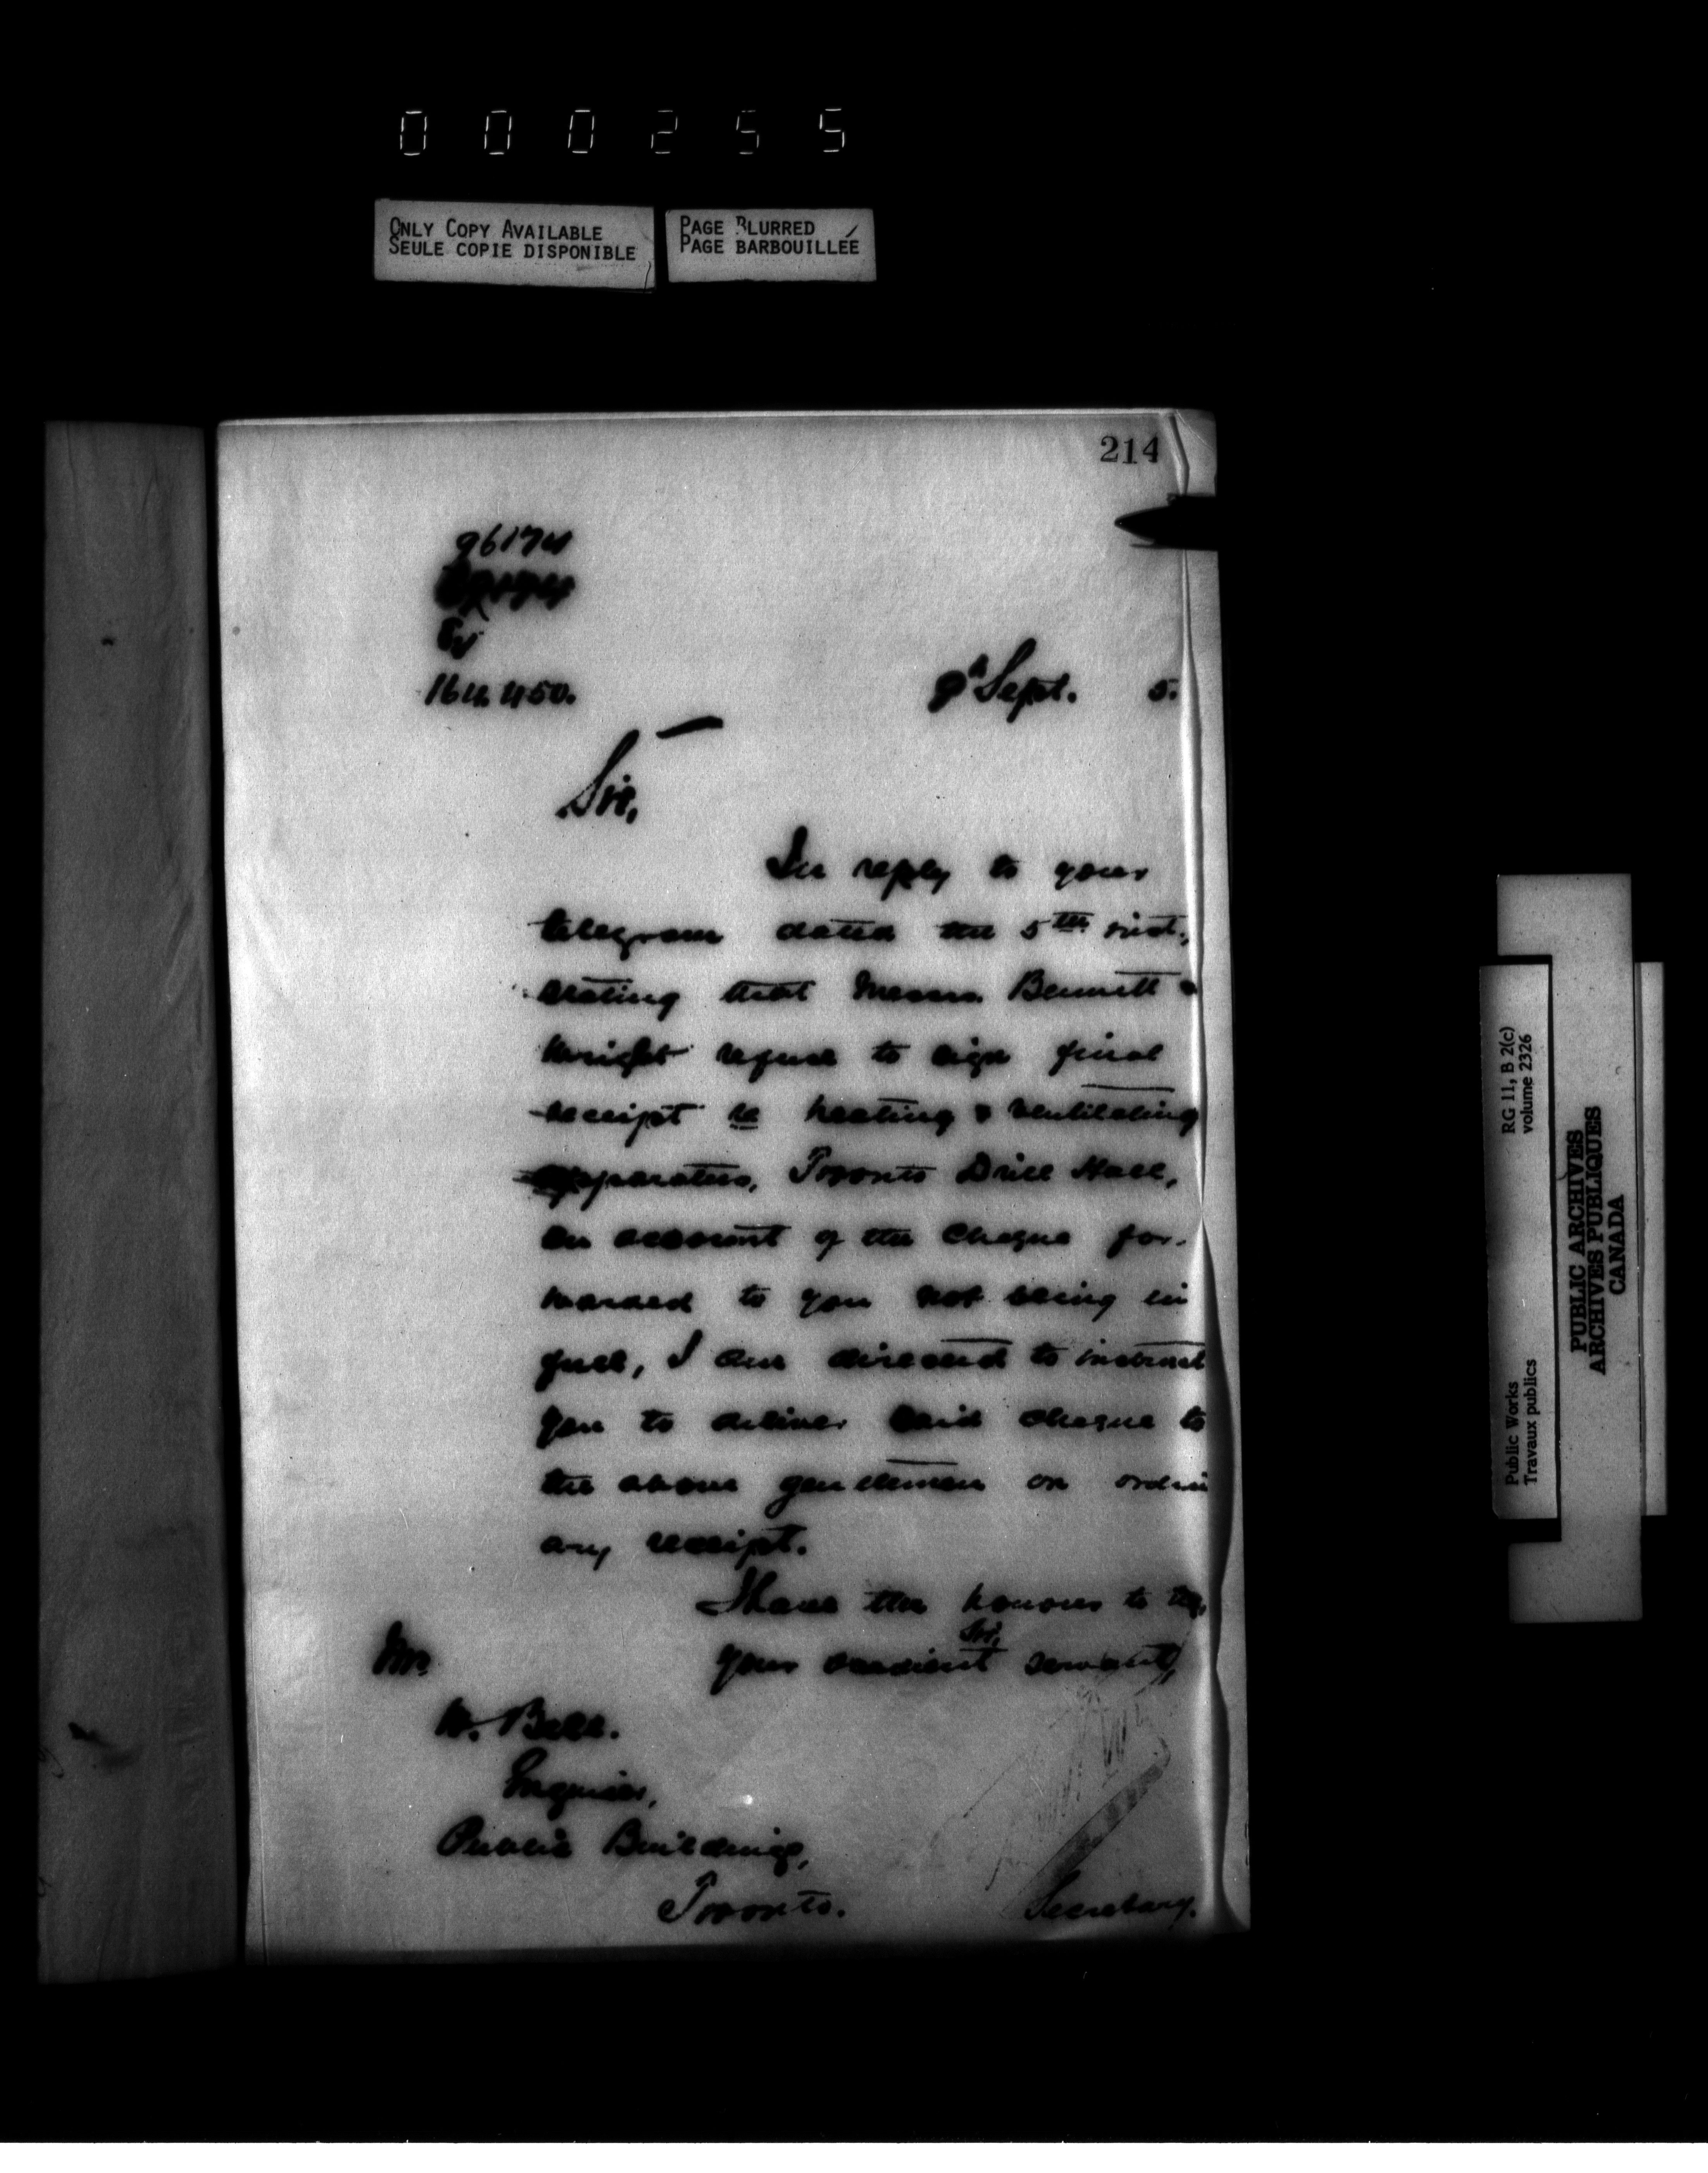 000255
ONLY COPY AVAILABLE
SEULE COPIE DISPONIBLE
PAGE BLURRED
PAGE BARBOUILLÉE
214
96174
164450.
9th Sept. 5.
Sir,
In reply to your
telegram dated the 5th inst.,
stating that Messrs. Bennett &
Wright refuse to sign final
receipt re heating & ventilating
apparatus, Toronto Drill Hall,
on account of the cheque for-
warded to you not being in
full, I am directed to instruct
you to deliver said cheque to
the above gentlemen on
any receipt.
I have the honour to be,
Sir,
your obedient servant,
Mr.
W. Bell.
Engineer,
Public Buildings,
Toronto.
Secretary.
RG 11, B 2(c)
volume 2326
Public Works
Travaux publics
PUBLIC ARCHIVES
ARCHIVES PUBLIQUES
CANADA